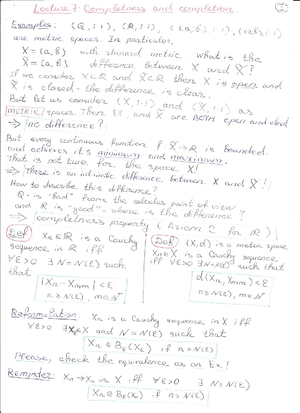 Lecture 7: Completness and completion
①
Examples: (Q, |·|), (R, |·|), ((a,b), |·|), ([a,b], |·|)
are metric spaces. In particular,
X = (a, b) with standard metric what is the
X̃ = [a, b] difference between X and X̃?
If we consider X ⊂ R and X̃ ⊂ R then X is open and
X̃ is closed - the difference is clear.
But let us consider (X, |·|) and (X̃, |·|) as
METRIC spaces. Then X, and X̃ are BOTH open and closed
⇒ no difference?
But every continuous function f: X̃ → R is bounded
and achieves its minimum and maximum.
That is not true for the space X!
⇒ There is an intrinsic difference between X and X̃!
How to describe this difference?
Q - is "bad" from the calculus point of view
and R is "good" - where is the difference?
⇒ completness property (Axiom C for R)
Def xn ∈ R is a Cauchy
sequence in R iff
∀ε>0 ∃ N=N(ε) such
that
|xn - xn+m| < ε
n ≥ N(ε), m ∈ N
Def (X, d) is a metric space,
xn ∈ X is a Cauchy sequence
iff ∀ε>0 ∃ N=N(ε) such that
d(xn, xn+m) < ε
n ≥ N(ε), m ∈ N
Reformulation xn is a Cauchy sequence in X iff
∀ε>0 ∃ X and N=N(ε) such that
xn ∈ Bε if n > N(ε)
Please, check the equivalence as an Ex.!
Reminder: xn → x0 in X iff ∀ε>0 ∃ N=N(ε)
xn ∈ Bε(x0) if n > N(ε)